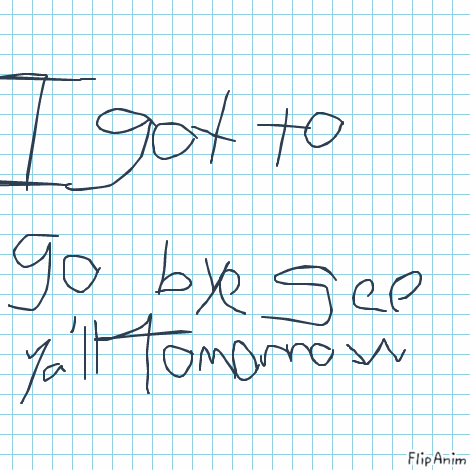 I got to
go bye see
ya'll tomorrow
FlipAnim